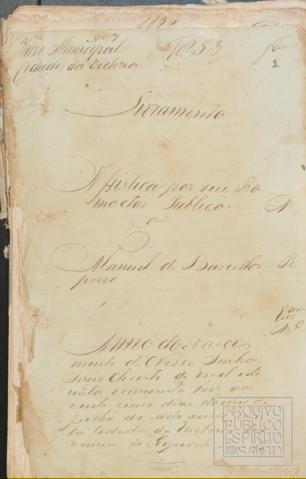 1853
Juizo Municipal
Cidade da Victoria
1853
1
Summario
A Justiça por seu Pro
motor Publico
A
e
Manuel de Barcellos
R
preso
Anno do Nasci
mento de Nosso Senhor
Jesus Christo de mil oito
centos e cincoenta e tres aos
vinte cinco dias do mez de
Julho do dito anno
da Cidade da Victoria
ARQUIVO
PUBLICO
ESPIRITO
SANTO